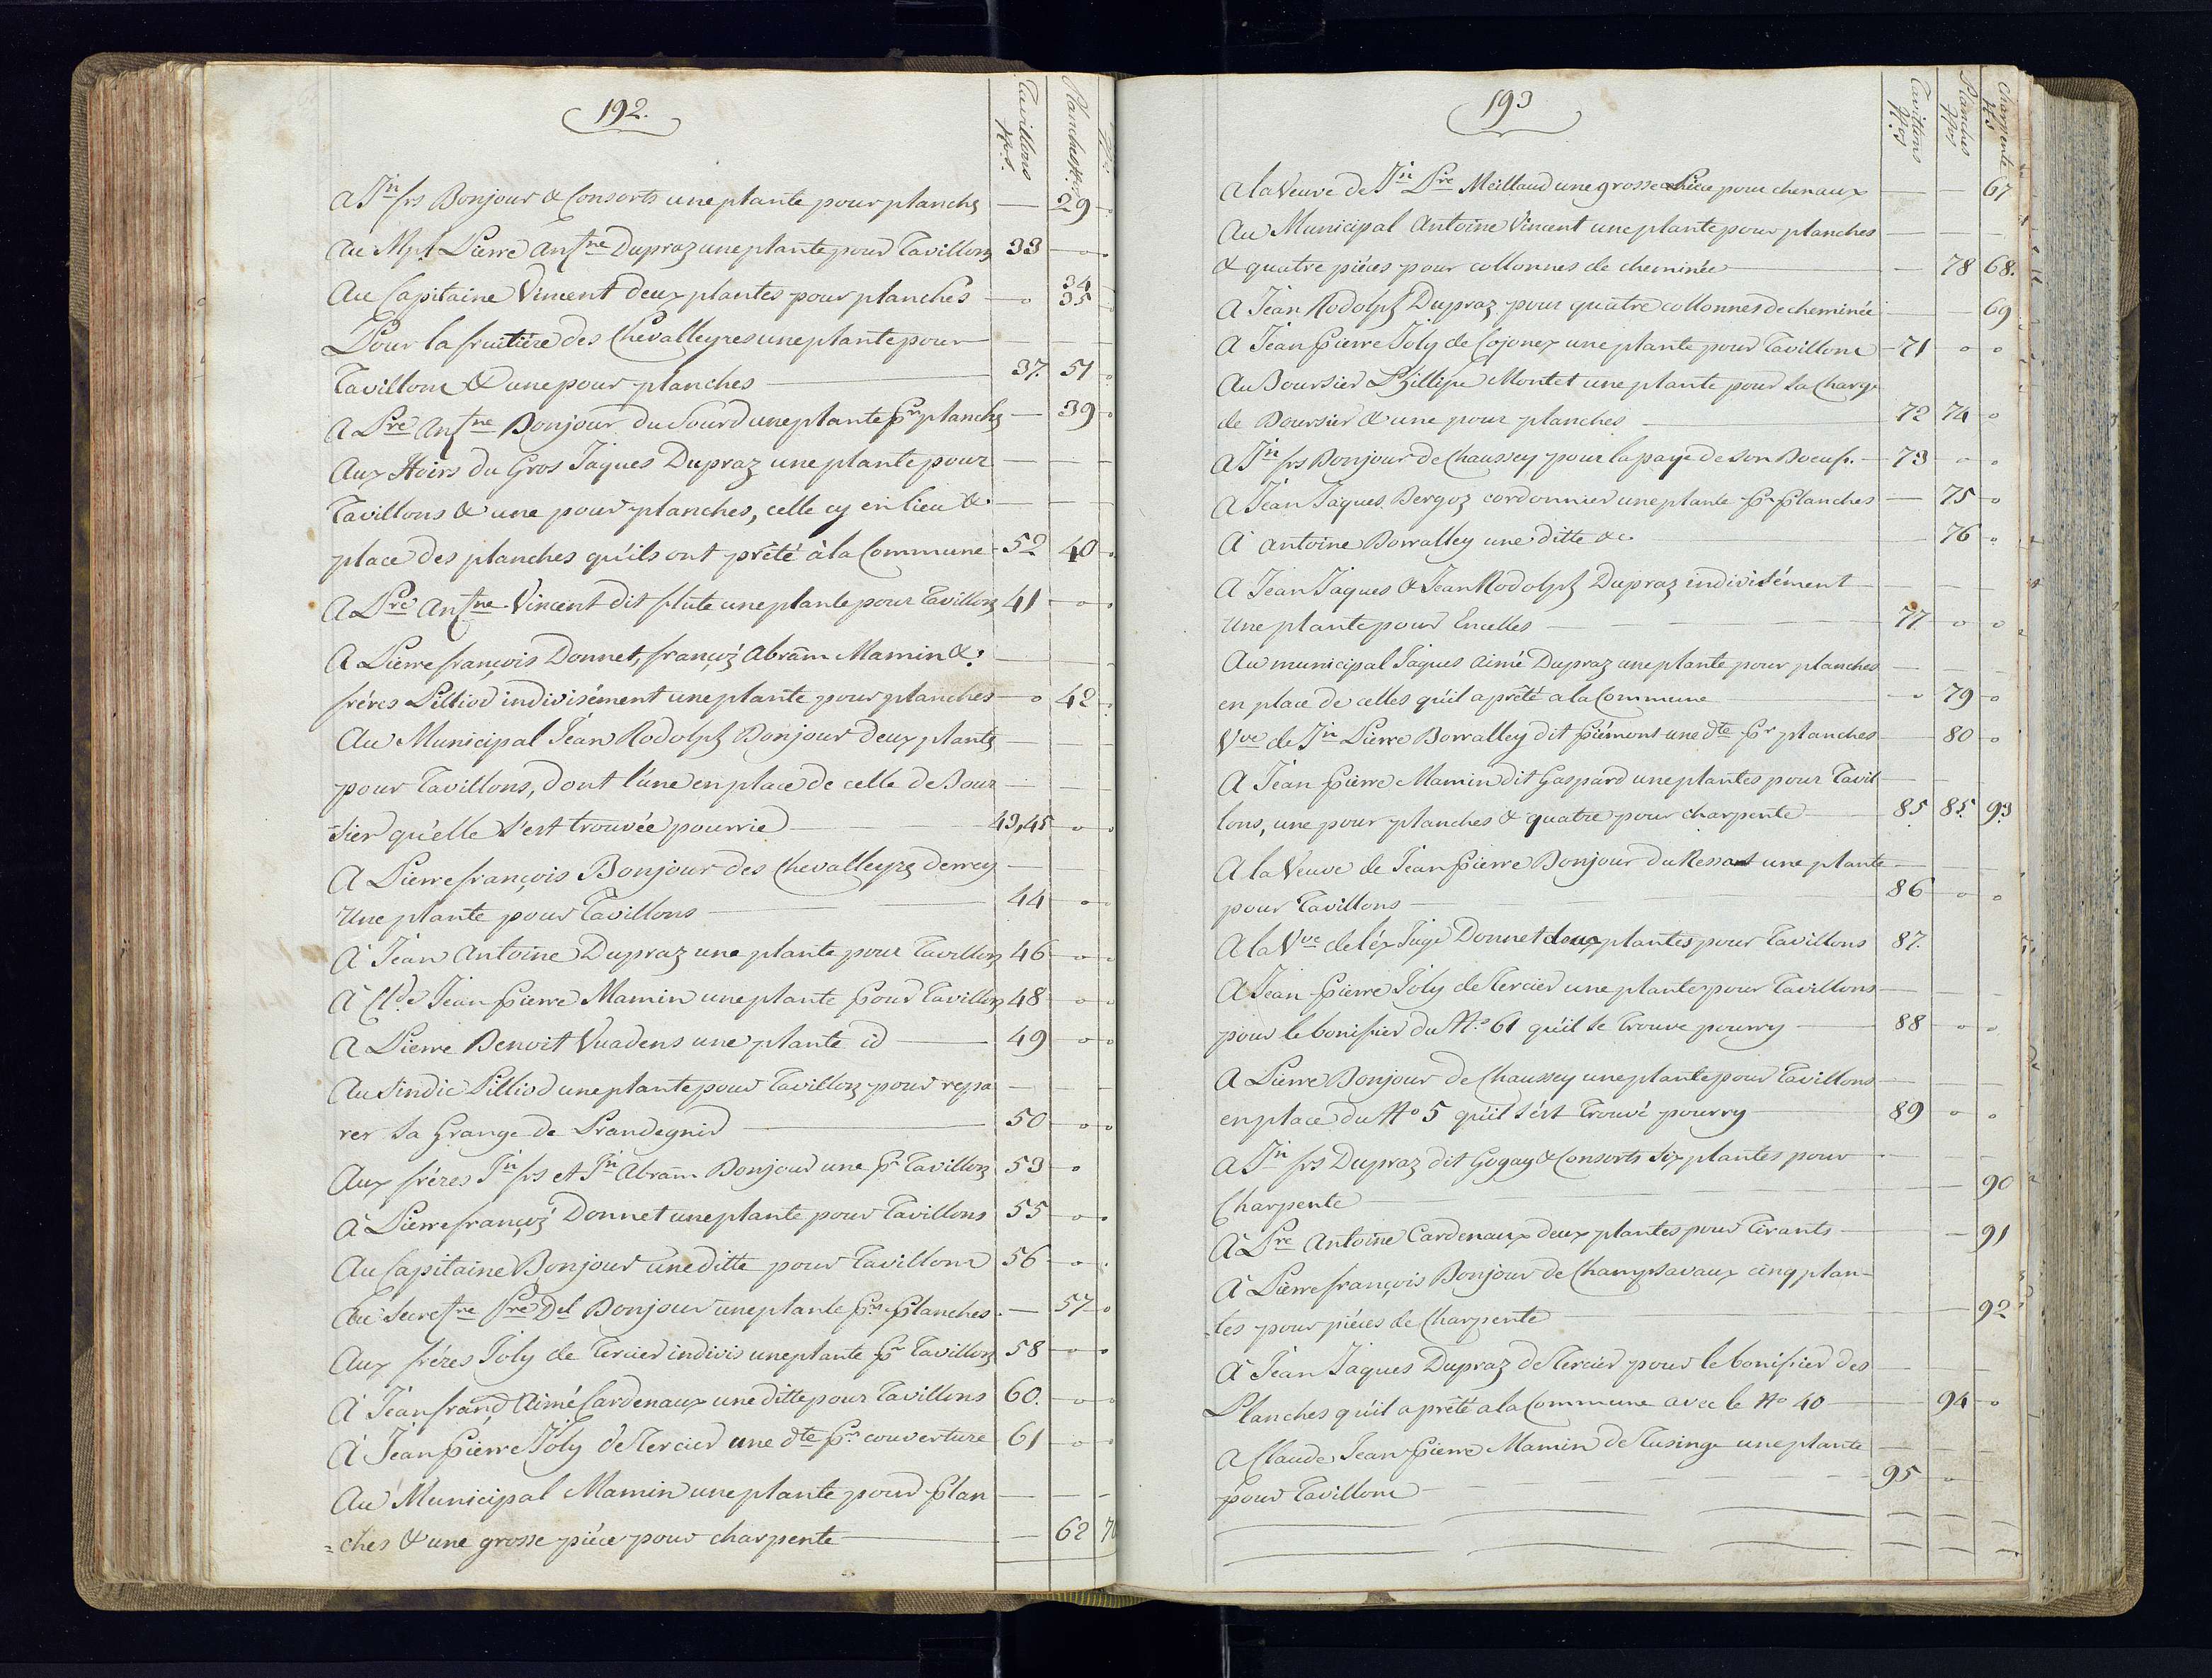 192.
Tavillons
N.os
Planches N.os
A Jn frs Bonjour & Consorts une plante pour planchs — 29
Au Mpl Pierre Antne Dupraz une plante pour Tavillons 33
Au Capitaine Vincent deux plantes pour planches — 34 35
Pour la fruitiére des Chevalleyres une plante pour
Tavillons & une pour planches — 37. 51
A Pre Antne Bonjour du Sourd une plante pr planchs — 39
Aux Hoirs du Gros Jaques Dupraz une plante pour
Tavillons & une pour planches, celle cy en lieu &
place des planches qu'ils ont prêté à la Commune 52 40
A Pre Antne Vincent dit flute une plante pour Tavillons 41
A Pierre françois Donnet, françs Abram Mamin &
fréres Pilliod indivisément une plante pour planches — 42
Au Municipal Jean Rodolph Bonjour deux plants
pour Tavillons, dont l'une en place de celle de Bour
sier qu'elle s'est trouvée pourrie — 43,45
A Pierre françois Bonjour des Chevalleyrs derrey
Une plante pour Tavillons — 44
A Jean Antoine Dupraz une plante pour Tavillons 46
A Clde Jean Pierre Mamin une plante pour Tavillons 48
A Pierre Benoit Vuadens une plante id — 49
Au Sindic Pilliod une plante pour Tavillons pour repa
rer sa Grange de Prandegnid — 50
Aux fréres Jn frs et Jn Abram Bonjour une pr Tavillons 53
A Pierre françs Donnet une plante pour Tavillons 55
Au Capitaine Bonjour une ditte pour Tavillons 56
Au Secretre Pre Dd Bonjour une plante pr Planches — 57
Aux fréres Joly de Tercier indivis une plante pr Tavillons 58
A Jean françs Aimé Cardenaux une ditte pour Tavillons 60.
A Jean Pierre Joly de Tercier une dte pr couverture 61
Au Municipal Mamin une plante pour Plan
=ches & une grosse piéce pour charpente — 62 70
193
Tavillons
N.os
Planches
N.os
Charpente
N.os
A la Veuve de Jn Pre Meillaud une grosse Piéce pour chenaux — 67
Au Municipal Antoine Vincent une plante pour planches
& quatre piéces pour collonnes de cheminée — 78 68.
A Jean Rodolph Dupraz pour quatre collonnes de cheminée 69
A Jean Pierre Joly de Cojonex une plante pour Tavillons 71
Au Boursier Phillipe Montet une plante pour sa Charge
de Boursier & une pour planches — 72 74
A Jn frs Bonjour de Chaussey pour la paye de son Boeuf. — 73
A Jean Jaques Bergoz cordonnier une plante pr Planches — 75
A Antoine Borralley une ditte &c. 76
A Jean Jaques & Jean Rodolph Dupraz indivisément
une plante pour Encelles — 77
Au municipal Jaques Aimé Dupraz une plante pour planches
en place de celles qu'il a prêté a la Commune — 79
Vve de Jn Pierre Borralley dit Piémont une dte pr planches — 80
A Jean Pierre Mamin dit Gaspard une plantes pour Tavil
lons, une pour planches & quatre pour charpente — 85 85. 93
A la Veuve de Jean Pierre Bonjour du Ressat une plante
pour Tavillons — 86
A la Vve de l'éx Juge Donnet deux plantes pour Tavillons 87.
A Jean Pierre Joly de Tercier une plante pour Tavillons
pour le bonifier du No 61 qu'il se trouve pourry — 88
A Pierre Bonjour de Chaussey une plante pour Tavillons
en place du No 5 qu'il s'ést trouvé pourry — 89
A Jn frs Dupraz dit Gogay & Consorts Six plantes pour
Charpente — 90
A Pre Antoine Cardenaux deux plantes pour Tirants — 91
A Pierre françois Bonjour de Champsavaux cinq plan-
-tes pour piéces de Charpente — 92
A Jean Jaques Dupraz de Tercier pour le bonifier des
Planches qu'il a prêté a la Commune avec le No 40 — 94
A Claude Jean Pierre Mamin de Tusinge une plante
pour Tavillons — 95